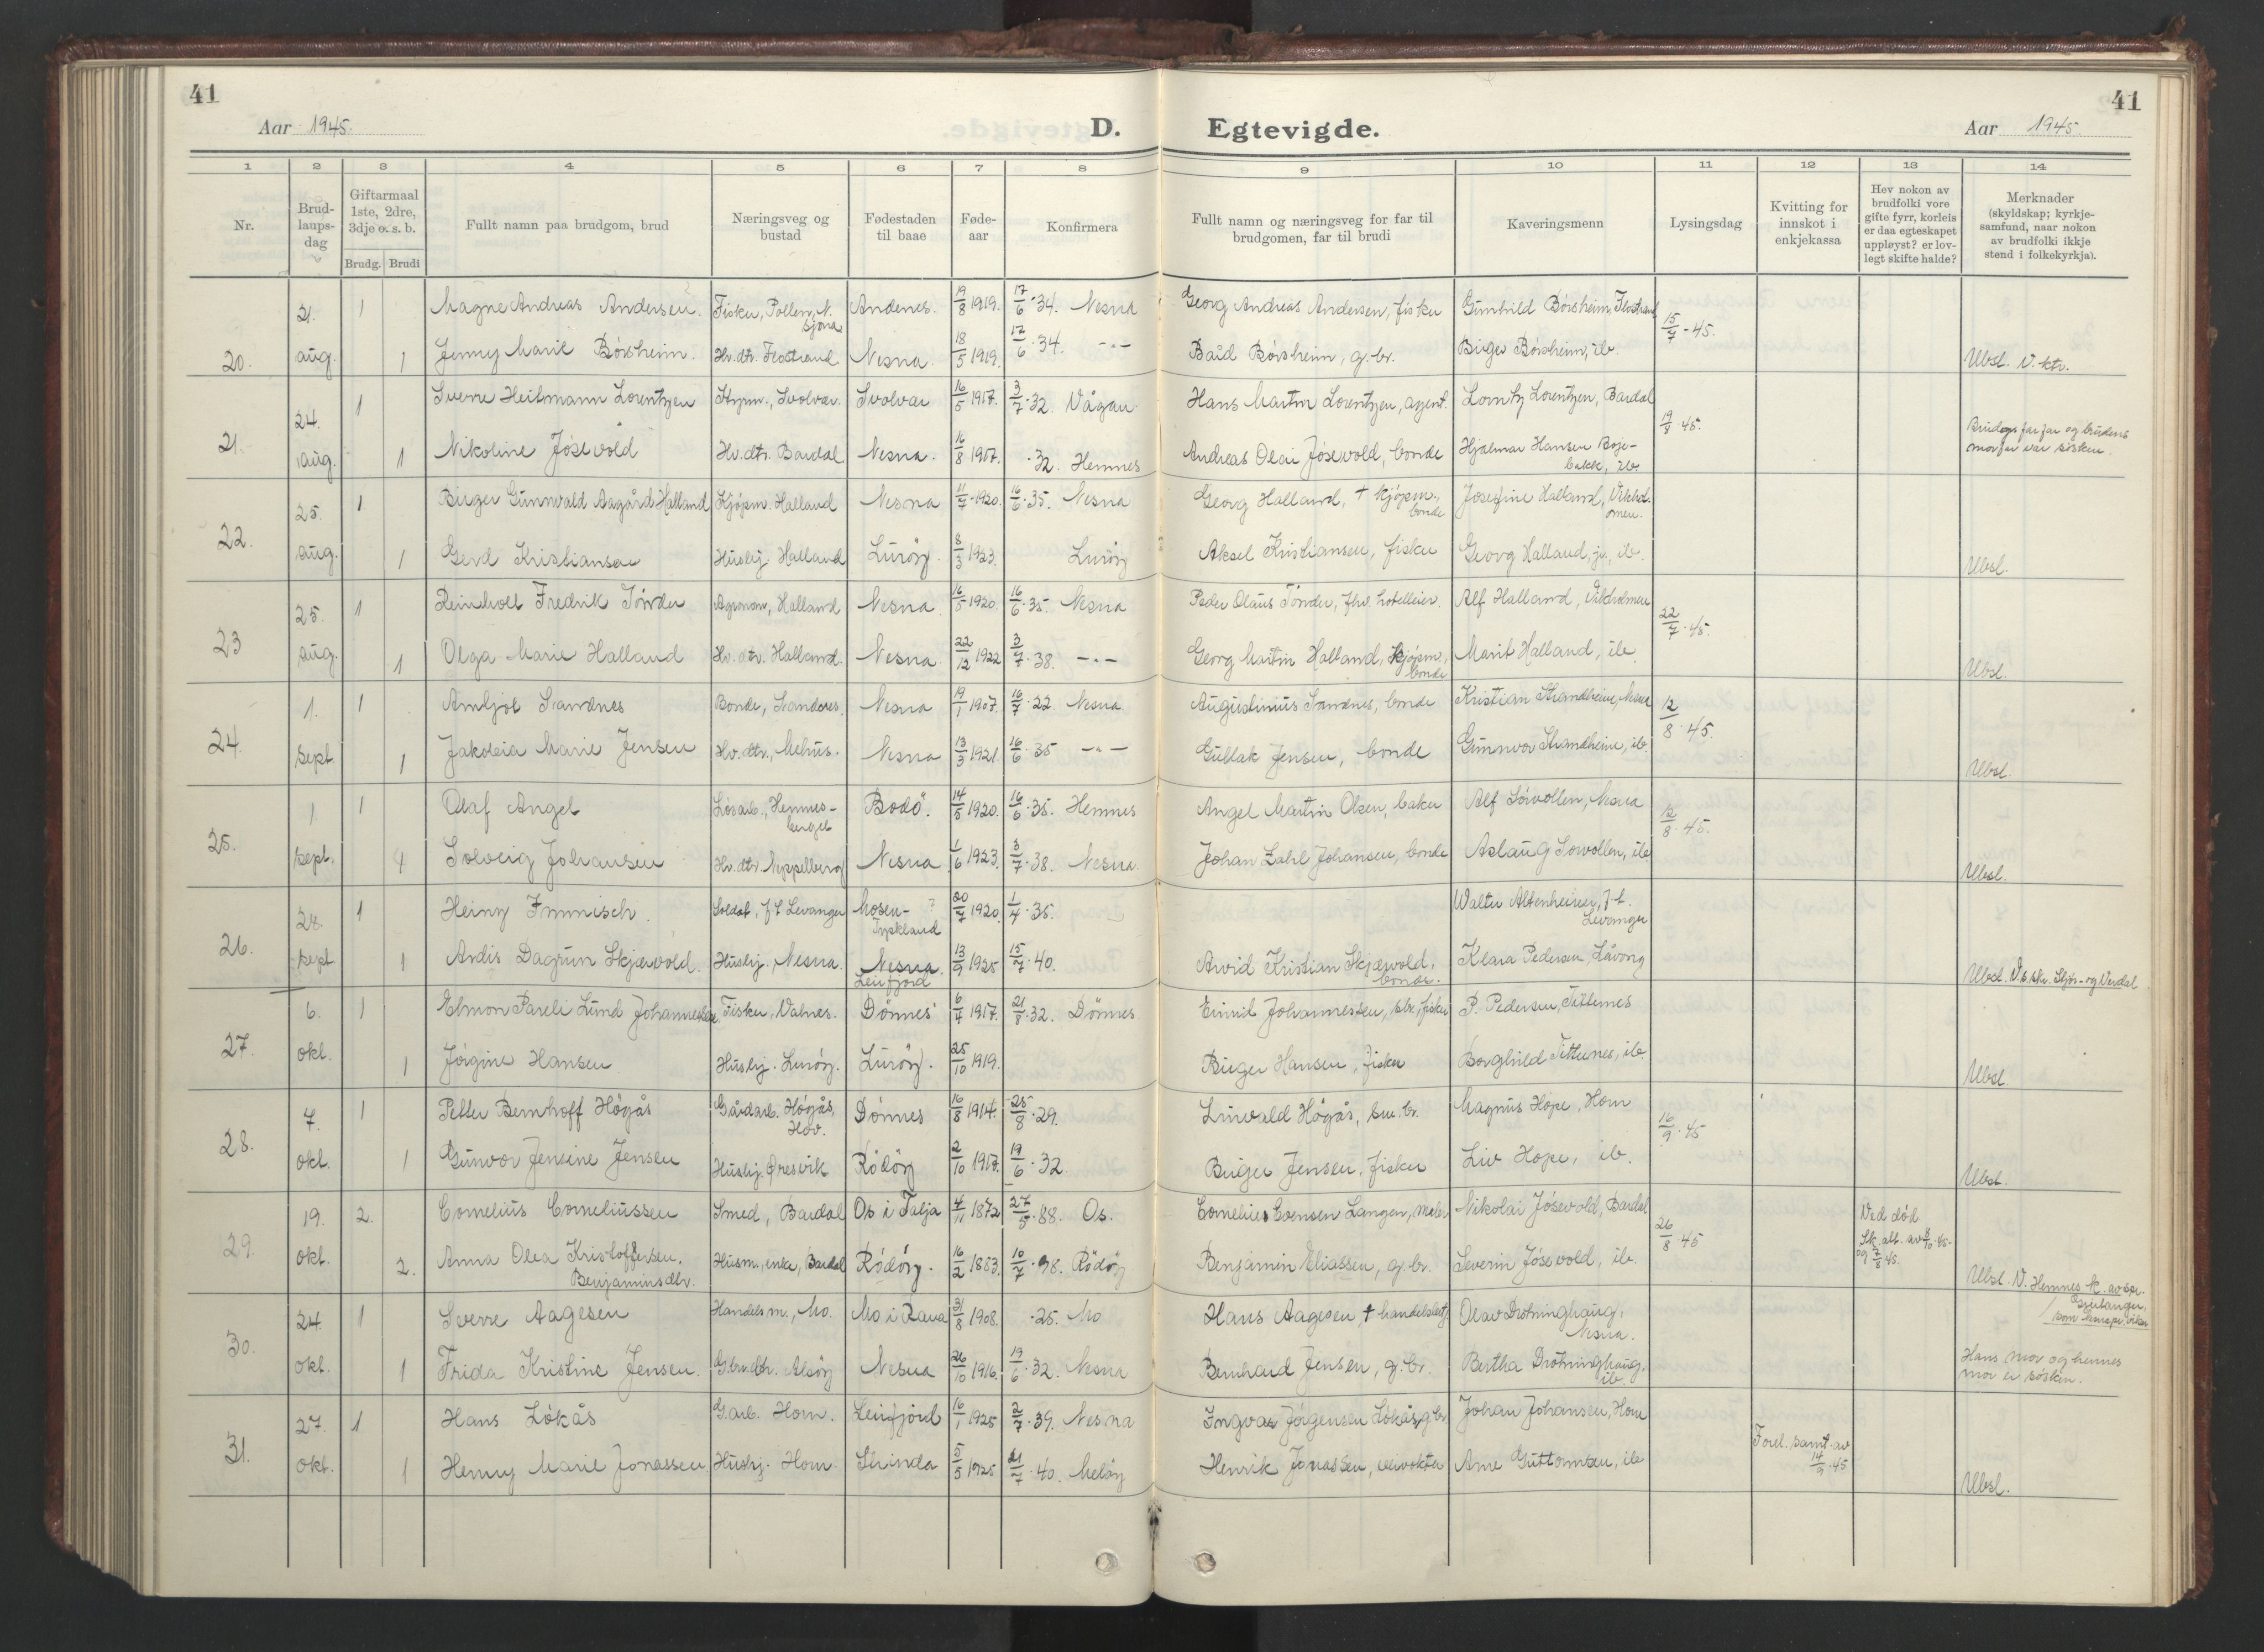 41
Aar 1945.
D.
Egtevigde.
Aar 1945
41
1 2 3 4 5 6 7 8 9 10 11 12 13 14
Nr.
Brud-
laups-
dag
Giftarmaal
1ste, 2dre,
3dje o. s. b.
Brudg. Brudi
Fullt namn paa brudgom, brud
Næringsveg og
bustad
Fødestaden
til baae
Føde-
aar
Konfirmera
Fullt namn og næringsveg for far til
brudgomen, far til brudi
Kaveringsmenn
Lysingsdag
Kvitting for
innskot i
enkjekassa
Hev nokon av
brudfolki vore
gifte fyrr, korleis
er daa egteskapet
uppløyst? er lov-
legt skifte halde?
Merknader
(skyldskap; kyrkje-
samfund, naar nokon
av brudfolki ikkje
stend i folkekyrkja).
21. 1 Magne Andreas Andersen. Fisker, Pollen, N. Sjona Andenes. 19/8 1919. 17/6 34. Nesna Georg Andreas Andersen, fisker Gunhild Börsheim, Flostrand 15/7 - 45.
20. aug. 1 Jenny Marie Börsheim. Hv.dtr. Flostrand Nesna. 18/5 1919. 17/6 34. -"- Baid Börsheim, g.br. Birger Börsheim, ib. Ubsl. V. ktr.
24. 1 Sverre Heitmann Lorentzen Strpm., Svolvær. Svolvær 16/5 1917. 3/7 32. Vågan Hans Martin Lorentzen, agent. Lorntz Lorentzen, Bardal 19/8 45. Brudgs farfar og brudens
21. aug. 1 Nikoline Jósevold Hv.dtr. Bardal Nesna. 16/8 1917. 32. Hemnes Andreas Olai Jósevold, bonde Hjalmar Hansen Boje-
bakk, ib morfar var søsken.
25. 1 Birger Gunnvald Aasgård Halland Kjópm. Halland Nesna 11/7 1920. 16/6 35. Nesna Georg Halland, † kjópm., bonde Josefine Halland, Vikhol-
omen.
22. aug. 1 Gerd Kristiansen Hushj. Halland Luröy. 8/3 1923. Luröy Aksel Kristiansen, fisker Georg Halland, jr., ib. Ubsl.
25. 1 Reinholt Fredrik Tónder Agronom, Halland Nesna 16/5 1920. 16/6 35. Nesna Peder Olaus Tónder, fhv. hotelleier. Alf Halland, Vikholmen 22/7 45.
23 aug. 1 Olga Marie Halland Hv.dtr. Halland. Nesna 22/12 1922 3/7 38. -"- Georg Martin Halland, kjópm., bonde Marit Halland, ib. Ubsl.
1. 1 Arnljot Sandnes Bonde, Sandnes. Nesna 19/1 1907. 16/7 22. Nesna Augustinus Sandnes, bonde Kristian Strandheim, Nesna 12/8 45.
24. sept 1 Jakobia Marie Jensen Hv.dtr., Mehus. Nesna 13/3 1921. 16/6 35 -"- Gullak Jensen, bonde Gunnvor Strandheim, ib. Ubsl.
1 1 Olaf Angel Lósarb., Hemnes-
berget Bodö. 14/5 1920. 16/6 35. Hemnes Angel Martin Olsen, baker Alf Sörvollen, Nesna 12/8 45.
25. sept. 1 Solveig Johansen Hv.dtr. Neppelberg Nesna 1/6 1923. 3/7 38. Nesna. Johan Zahl Johansen, bonde Aslaug Sörvollen, ib Ubsl.
28. 1 Heinz Immisch. Soldat, f.t. Levanger Mosen-
Tyskland ? 20/7 1920. 1/4 35. Walter Altenheimer, f.t.
Levanger
26. sept 1 Ardis Dagrun Skjævold. Hushj., Nesna. Nesna.
Leirfjord 13/9 1925 15/7 40. Arvid Kristian Skjævold, bonde. Klara Pedersen, Låvong Ubsl. V. s.skr. Stjór- og Verdal
6. 1 Elmon Pareli Lund Johannessen Fisker, Valnes. Dönnes 6/7 1917. 21/8 32. Dönnes Emil Johannessen, sbr., fisker P. Pedersen, Titternes
27. okt. 1 Jórgine Hansen Hushj. Luröy. Luröy. 25/10 1919. Birger Hansen, fisker Borghild Titternes, ib. Ubsl.
7. 1 Petter Bernhoff Högås Gårdarb. Högås,
Hov. Dönnes 16/8 1914. 25/8 29. Linvald Högås, sm.br. Magnus Hope, Hom 16/9 45
28. okt. 1 Gunvor Jensine Jensen Hushj. Øresvik Rödöy 2/10 1917. 19/6 32. Birger Jensen, fisker Liv Hope, ib. Ubsl.
19. 2. Cornelius Corneliussen Smed, Bardal Os i Talja 4/11 1872 27/5 88. Os. Cornelius Evensen Langen, maler Nikolai Jósevold, Bardal 26/8 45 Ved död
Sk. att. av 8/10 45-
og 7/8 45.
29. okt. 2. Anna Olea Kristoffersen.
Benjaminsdtr. Husm., enke, Bardal Rödöy. 16/2 1883. 10/7 98. Rödöy Benjamin Eliassen, g.br. Severin Jósevold, ib. Ubsl. V. Hemnes k. av spr.
som
24. 1 Sverre Aagesen Handelsm., Mo. Mo i Rana 31/8 1908. 25. Mo Hans Aagesen, † handelsbetj. Olav Drotninghaug, Nesna.
30. okt. 1 Frida Kristine Jensen. G.br.dtr. Alsöy Nesna 26/10 1916. 19/6 32. Nesna Bernhard Jensen, g.br. Bertha Drotninghaug, ib Hans mor og hennes
mor er søsken.
27. 1 Hans Lökås G.arb. Hom. Leirfjord 16/1 1925 2/7 39. Nesna Ingvar Jórgensen Lökås, g.br. Johan Johansen, Hom Forel. samt. av
14/9 45
31. okt. 1 Henny Marie Jonassen Hushj. Hom Strinda 5/5 1925 21/7 40. Melöy Henrik Jonassen, Arne Guttormsen, ib Ubsl.